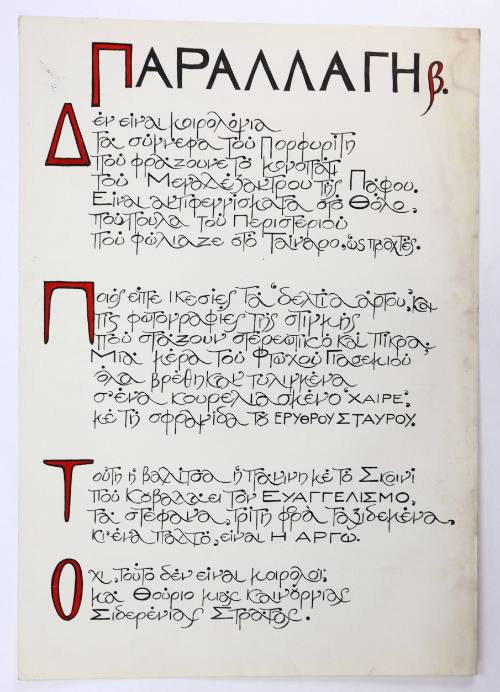 ΠΑΡΑΛΛΑΓΗ β.
Δέν είναι μοιρολόγια
Τά σύννεφα τού Πορφυρίτη
Πού φράζουνε τό
Τού Μεγαλέξαντρου τής Πάφου.
Είναι αντιφεγγίσματα στό Θόλο,
πούπουλα τού Περιστεριού
πού φώλιαζε στό Ταίναρο, ώς προχτές.
Ποιός είπε ικεσίες τά "δελτία άρτου", και
τίς φωτογραφίες τής στιγμής
πού στάζουν στερεωτικό καί πίκρα;
Μιά μέρα τού Φτωχού Γιασεμιού
όλα βρέθηκαν τυλιγμένα
σ'ένα κουρελιασμένο "ΧΑΙΡΕ",
μέ τή σφραγίδα τού ΕΡΥΘΡΟΥ ΣΤΑΥΡΟΥ.
Τούτη ή βαλίτσα ή πάνινη μέ τό Σκοινί
πού Κουβαλάει τόν ΕΥΑΓΓΕΛΙΣΜΟ,
τά στέφανα, τρίτη φορά ταξιδεμένα,
κι'ένα παλτό, είναι Η ΑΡΓΩ.
Όχι, τούτο δέν είναι μοιρολόϊ;
μά Θούριο μιάς Καινούργιας
Σιδερένιας Στράτας.